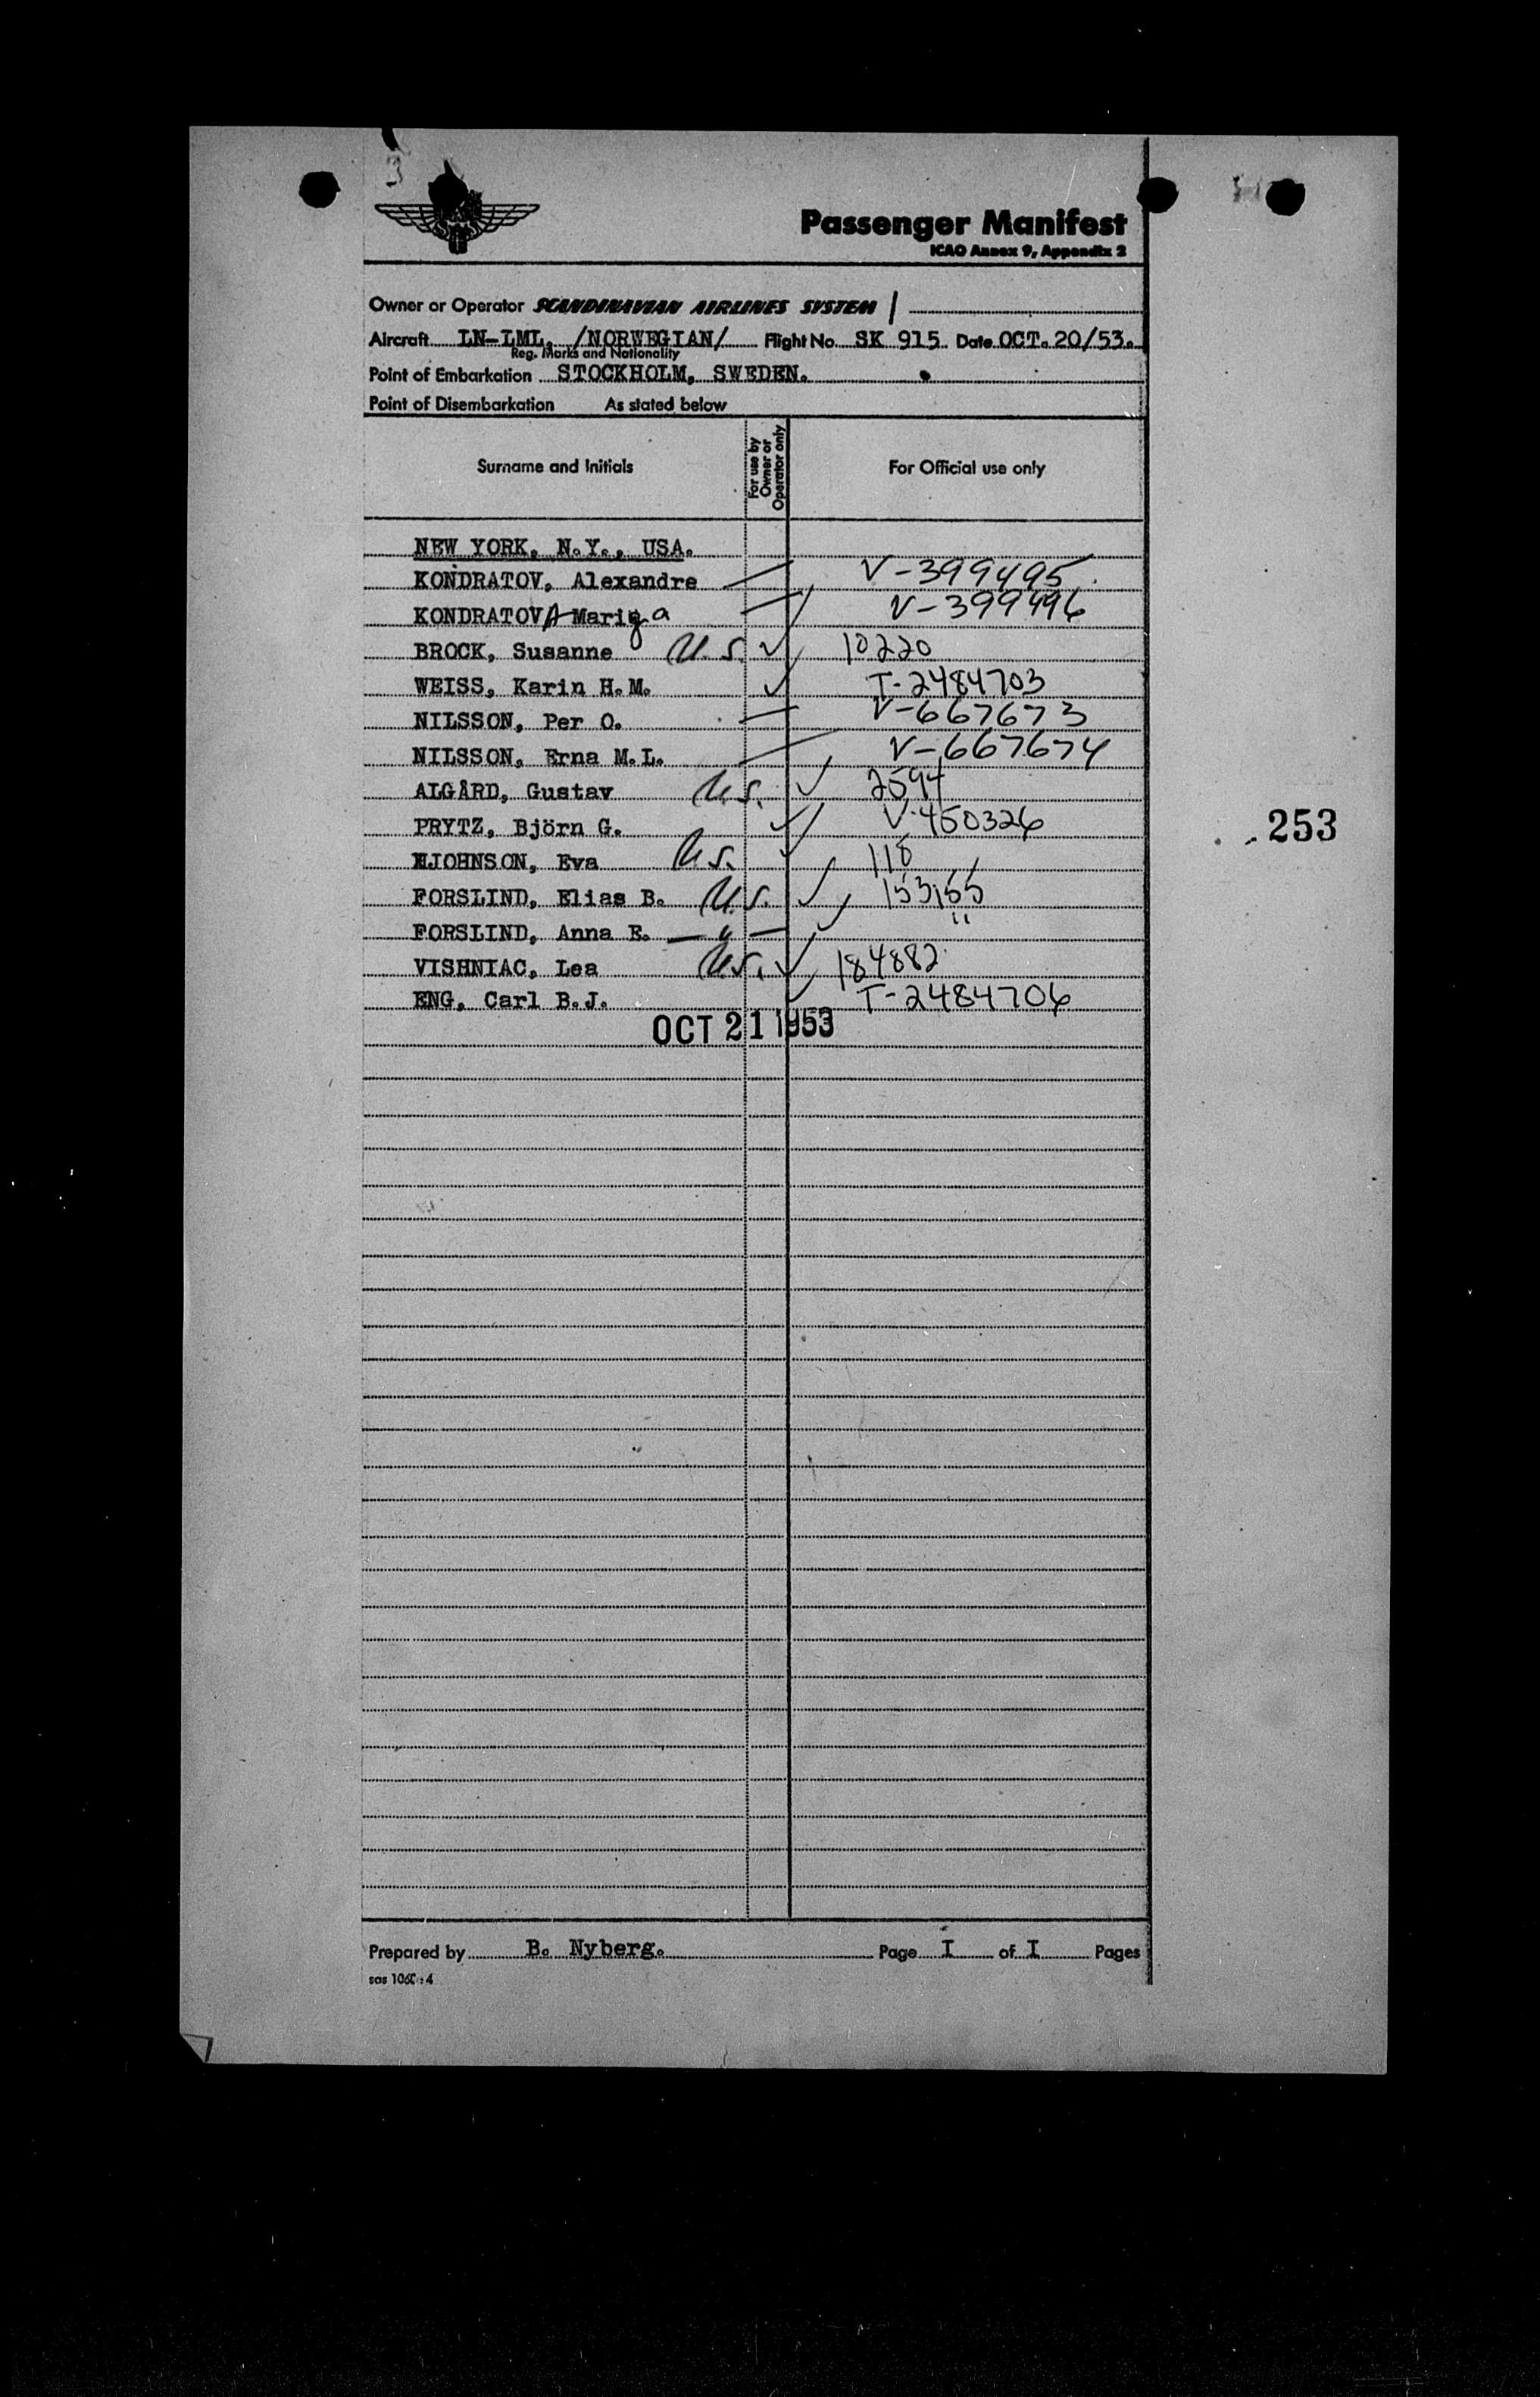 Passenger Manifest
ICAO Annex 9, Appendix 2
Owner or Operator SCANDINAVIAN AIRLINES SYSTEM
Aircraft LN-LML. /NORWEGIAN/ Flight No. SK 915 Date OCT. 20/53.
Reg. Marks and Nationality
Point of Embarkation STOCKHOLM, SWEDEN.
Point of Disembarkation As stated below
Surname and Initials For use by Owner or Operator only For Official use only
NEW YORK, N.Y., USA.
KONDRATOV, Alexandre V-399495
KONDRATOVA Mariya V-399496
BROCK, Susanne U.S. 10220
WEISS, Karin H.M. T-2484703
NILSSON, Per O. V-667673
NILSSON, Erna M.L. V-667674
ALGÅRD, Gustav U.S. 2594
PRYTZ, Björn G. V-450326
JOHNSON, Eva U.S. 118
FORSLIND, Elias B. U.S. 153155
FORSLIND, Anna E. — " — "
VISHNIAC, Lea U.S. 184882
ENG, Carl B.J. T-2484706
OCT 21 1953
253
Prepared by B. Nyberg. Page I of I Pages